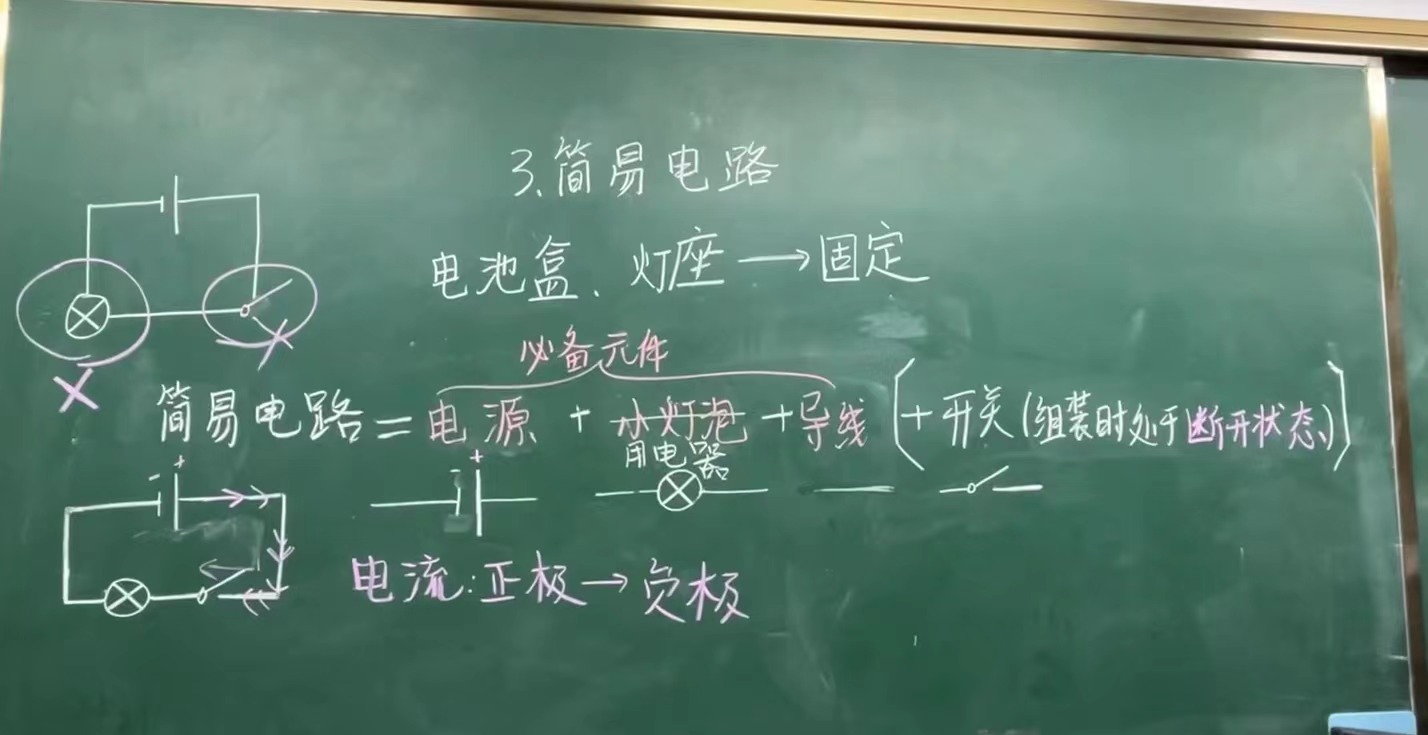 3、简易电路
电池盒、灯座→固定
必备元件
简易电路=电源+小灯泡+导线(+开关(组装时处于断开状态))
用电器
- +
- +
电流:正极→负极